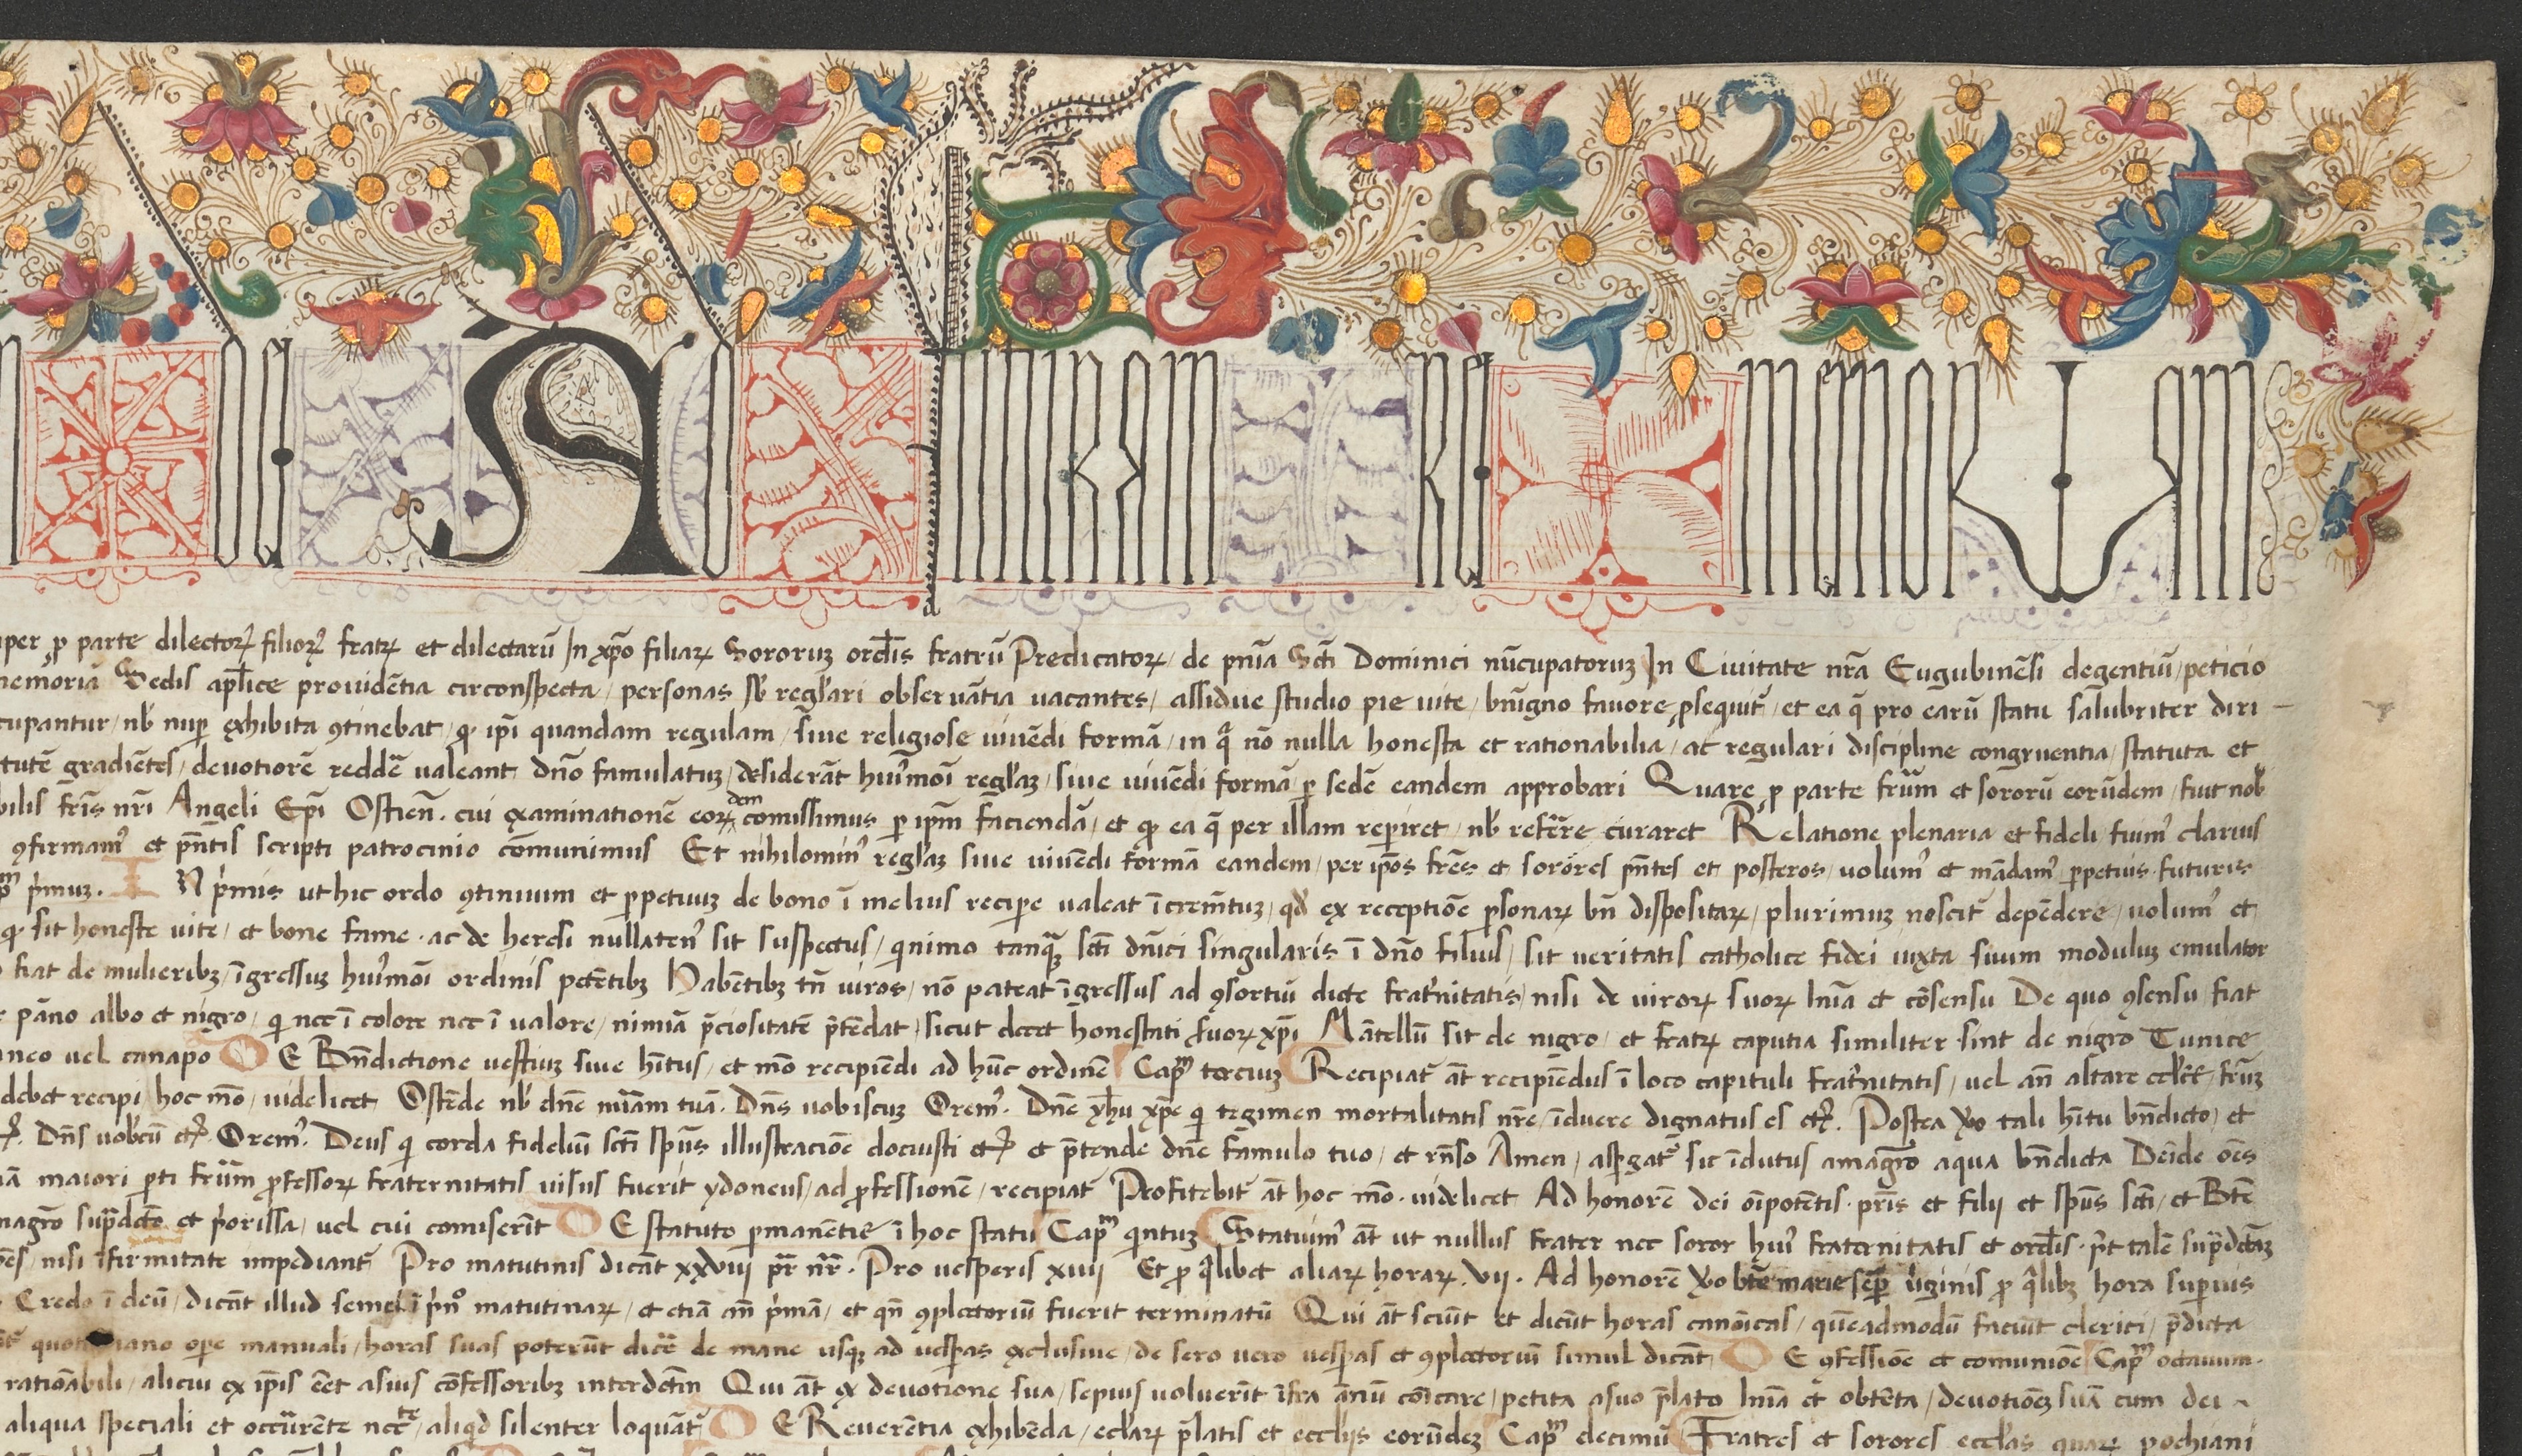 Ad Futuram Rei Memoriam
per ꝑ parte dilectoꝝ filioꝝ fratꝝ et dilectarū In xp̄o filiaꝝ Sororuꝫ ordīs fratrū Predicatoꝝ / de pn̄ia Scī Dominici nūcupatoruꝫ In Ciuitate nr̄a Eugubinēsi degentiū / peticio
memoriā Sedis apl̄ice prouidētia circonspecta / personas sb̄ regl̄ari obseruātia uacantes / assidue studio pie uite / bn̄igno fauore ꝓsequit᷑ / et ea q̄ pro earū statu salubriter diri
cupantur / nb̄ nuꝑ exhibita ꝯtinebat / ꝙ ip̄i quandam regulam / siue religiose uiuēdi formā / in qͣ nō nulla honesta et rationabilia / ac regulari discipline congruentia / statuta et
tutē gradiētes / deuotiorē reddē ualeant dn̄o famulatuꝫ / desiderāt huiꝰmoī regl̄aꝫ / siue uiuēdi formā ꝑ sedē eandem approbari Quare ꝓ parte frūm et sororū eorūdem / fuit nob̄
bilis fr̄is nr̄i Angeli Ep̄i Ostien̄. cui examinationē eoꝝdem comissimus ꝑ ip̄m faciendā / et ꝙ ea q̄ per illam reꝑiret / nb̄ referre curaret Relatione plenaria et fideli fuimꝰ clarius
ꝯfirmamꝰ et pn̄tis scripti patrocinio cōmunimus Et nihilominꝰ regl̄aꝫ siue uiuēdi formā eandem / per ip̄os fr̄es et sorores pn̄tes et posteros / uolumꝰ et mādamꝰ ꝑpetuis futuris
pͫ pͥmuꝫ. IN pͥmis ut hic ordo ꝯtinuum et ꝑpetuuꝫ de bono ī melius reciꝑe ualeat īcrem̄tuꝫ / qd̄ ex receptiōe ꝑsonaꝝ bn̄ dispositaꝝ / plurimuꝫ noscit᷑ depēdere / uolumꝰ et
ꝙ sit honeste uite / et bone fame . ac de heresi nullatenꝰ sit suspectus / quinimo tanqͣꝫ scī dn̄ici singularis ī dn̄o filius / sit ueritatis catholice fidei iuxta suum moduluꝫ emulator
fiat de mulieribꝫ / īgressuꝫ huiꝰmoī ordinis petētibꝫ Habētibꝫ tn̄ uiros / nō pateat īgressus ad ꝯsortiū dicte frat᷑nitatis / nisi de uiroꝝ suoꝝ lnīa et cōsensu De quo ꝯsensu fiat
pāno albo et nigro / qͥ nec ī colore nec ī ualore / nimiā p̄ciositatē p̄tēdat / sicut decet honestati suoꝝ xp̄i Mātellū sit de nigro / et fratꝝ caputia similiter sint de nigro Tunice
neo uel canapo DE Bn̄dictione uestiuꝫ siue hītus / et mō recipiēdi ad hūc ordinē Capͫ terciuꝫ Recipiat᷑ āt recipiēdus ī loco capituli frat᷑nitatis / uel an̄ altare
debet recipi hoc mō / uidelicet Ostēde nb̄ dn̄e miām tuā. Dn̄s uobiscuꝫ Oremꝰ. Dn̄e yh̄u xp̄e qͥ tegimen mortalitatis nr̄e / īduere dignatus es Postea ūo tali hītu bn̄dicto / et
Dn̄s uob̄cū Oremꝰ. Deus qͥ corda fideliū scī sp̄us illustraciōe docuisti et p̄tende dn̄e famulo tuo / et rn̄so Amen / asꝑgat᷑ sic īdutus amagr̄o aqua bn̄dicta Deīde oēs
maiori ꝑti frūm ꝓfessoꝝ fraternitatis uisus fuerit ydoneus / ad ꝓfessionē / recipiat᷑ Profitebit᷑ āt hoc mō . uidelicet Ad honorē dei oīpotētis . pr̄is et filij et sp̄us scī / et Btē
magr̄o sup̄dcō et pͥorissa / uel cui comiserīt DE statuto ꝑmanētie ī hoc statu Capͫ qͥntuꝫ Statuimꝰ āt ut nullus frater nec soror huiꝰ fraternitatis et ordīs .
nisi īfirmitate impediant᷑ Pro matutinis dicāt xxviij pr̄ nr̄. Pro uesperis xiiij Et ꝓ qͣlibet aliaꝝ horaꝝ. vij. Ad honorē ūo btē marie semꝑ uͥginis ꝓ qͣlibꝫ hora suꝑius
Credo ī deū / dicāt illud semel ī pͥnᵒ matutinaꝝ / et etiā an̄ pͥmā / et qn̄ ꝯpletoriū fuerit terminatū Qui āt sciūt et dicūt horas canōicas / quēadmodū faciūt clerici / p̄dicta
oꝑe manuali / horas suas poterūt dicē de mane usqꝫ ad uesꝑas exclusiue / de sero uero uesꝑas et ꝯpletoriū simul dicāt DE ꝯfessiōe et comuniōe Capͫ octauum.
rationābili / alicui ex ip̄is eēt asuis cōfessoribꝫ interdctm̄ Qui āt ex deuotione sua / sepius uoluerīt īfra annū cōicare / petita asuo p̄lato lnīa et obtēta / deuotiōeꝫ suā cum dei
aliqua speciali et occurrēte / aliqͥd silenter loquāt᷑ DE Reuerētia exhibēda / ecl̄aꝝ p̄latis et eccl̄ijs eorūdeꝫ Capͫ decimū Fratres et sorores eccl̄as quaꝝ pochiani